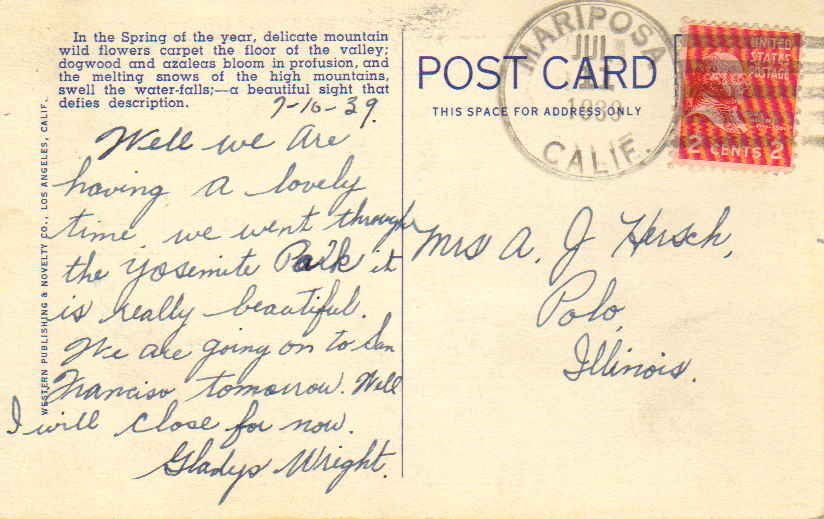 In the Spring of the year, delicate mountain
wild flowers carpet the floor of the valley;
dogwood and azaleas bloom in profusion, and
the melting snows of the high mountains,
swell the water-falls;—a beautiful sight that
defies description.
7-10-39.
Well we are
having a lovely
time. we went through
the Yosemite Park it
is really beautiful.
We are going on to San
Franciso tomorrow. Well
I will close for now.
Gladys Wright.
WESTERN PUBLISHING & NOVELTY CO., LOS ANGELES, CALIF.
POST CARD
THIS SPACE FOR ADDRESS ONLY
MARIPOSA
JUL
11
1939
CALIF.
UNITED
STATES
POSTAGE
2 CENTS 2
Mrs A. J Hersch,
Polo,
Illinois.